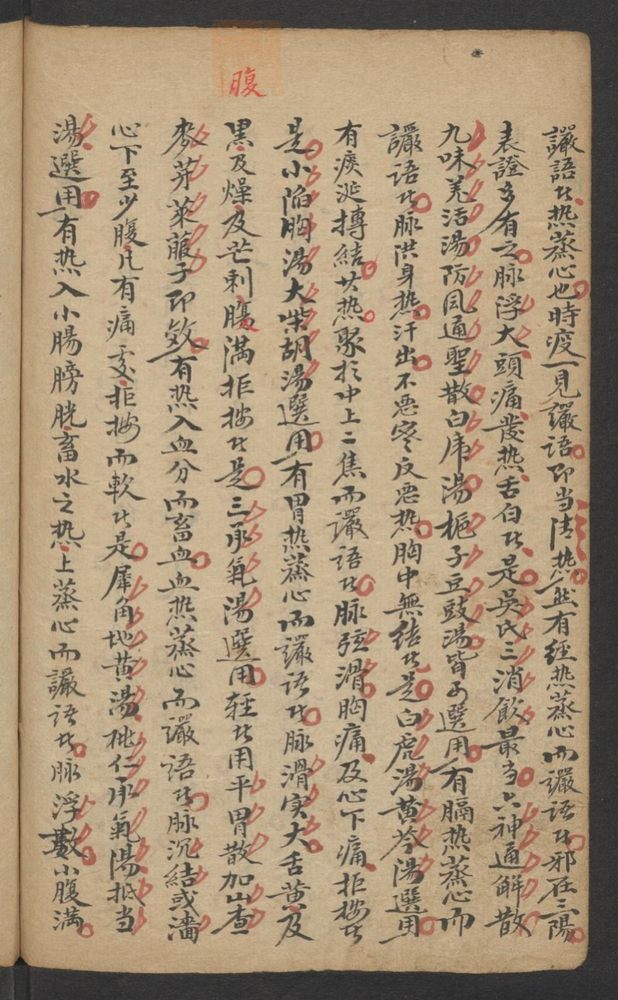 腹
讝語者热蒸心也時疫一見讝語即当清热然有経热蒸心而讝语者邪在三陽
表證多有之脉浮大頭痛發热舌白者是吳氏三消飲最当六神通解散
九味羌活湯防風通聖散白虎湯梔子豆豉湯皆可選用有膈热蒸心而
讝语者脉洪身热汗出不恶寒反恶热胸中無结者是白虎湯黄芩湯選用
有痰涎摶結其热聚扵中上二焦而讝语者脉弦滑胸痛及心下痛拒按者
是小陷胸湯大柴胡湯選用有胃热蒸心而讝语者脉滑实大舌黄及
黒及燥及芒刺腹满拒按者是三承氣湯選用轻者用平胃散加山查
麦芽萊菔子即效有热入血分而畜血血热蒸心而讝语者脉沉結或濇
心下至少腹凡有痛处拒按而軟者是犀角地黄湯桃仁承氣湯抵当
湯選用有热入小腸膀胱畜水之热上蒸心而讝语者脉浮數小腹满